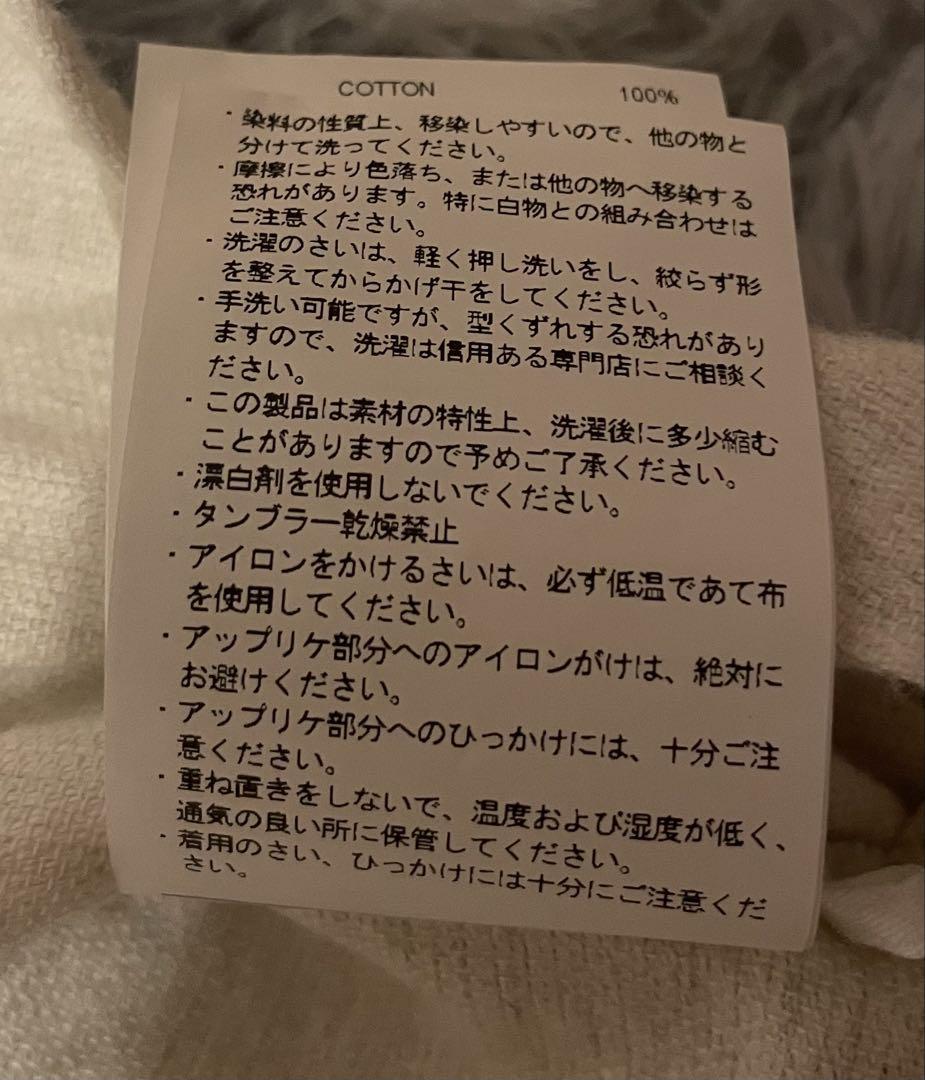 COTTON 100%
・染料の性質上、移染しやすいので、他の物と
分けて洗ってください。
・摩擦により色落ち、または他の物へ移染する
恐れがあります。特に白物との組み合わせは
ご注意ください。
・洗濯のさいは、軽く押し洗いをし、絞らず形
を整えてからかげ干をしてください。
・手洗い可能ですが、型くずれする恐れがあり
ますので、洗濯は信用ある専門店にご相談く
ださい。
・この製品は素材の特性上、洗濯後に多少縮む
ことがありますので予めご了承ください。
・漂白剤を使用しないでください。
・タンブラー乾燥禁止
・アイロンをかけるさいは、必ず低温であて布
を使用してください。
・アップリケ部分へのアイロンがけは、絶対に
お避けください。
・アップリケ部分へのひっかけには、十分ご注
意ください。
・重ね置きをしないで、温度および湿度が低く、
通気の良い所に保管してください。
・着用のさい、ひっかけには十分にご注意くだ
さい。